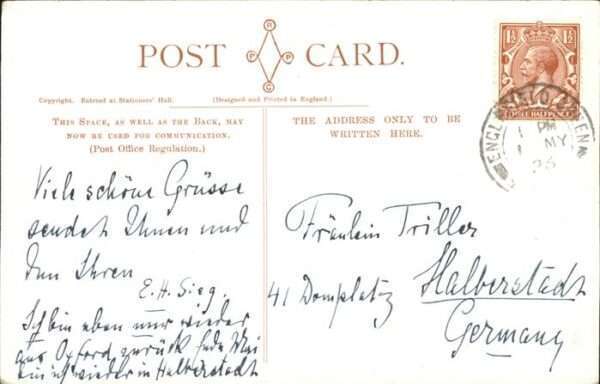 POST CARD.
R
P P
C
Copyright. Entered at Stationers' Hall.
(Designed and Printed in England.)
THIS SPACE, AS WELL AS THE BACK, MAY
NOW BE USED FOR COMMUNICATION.
(Post Office Regulation.)
THE ADDRESS ONLY TO BE
WRITTEN HERE.
1½ 1½
ENGLEFIELD GREEN
PM
MY
Viele schöne Grüsse
sendet Ihnen und
den Ihren
E. H. Sieg.
Ich bin eben nur wieder
aus Oxford zurück Ende Mai
bin ich wieder in Halberstadt
Fräulein Triller
41 Domplatz
Halberstadt
Germany